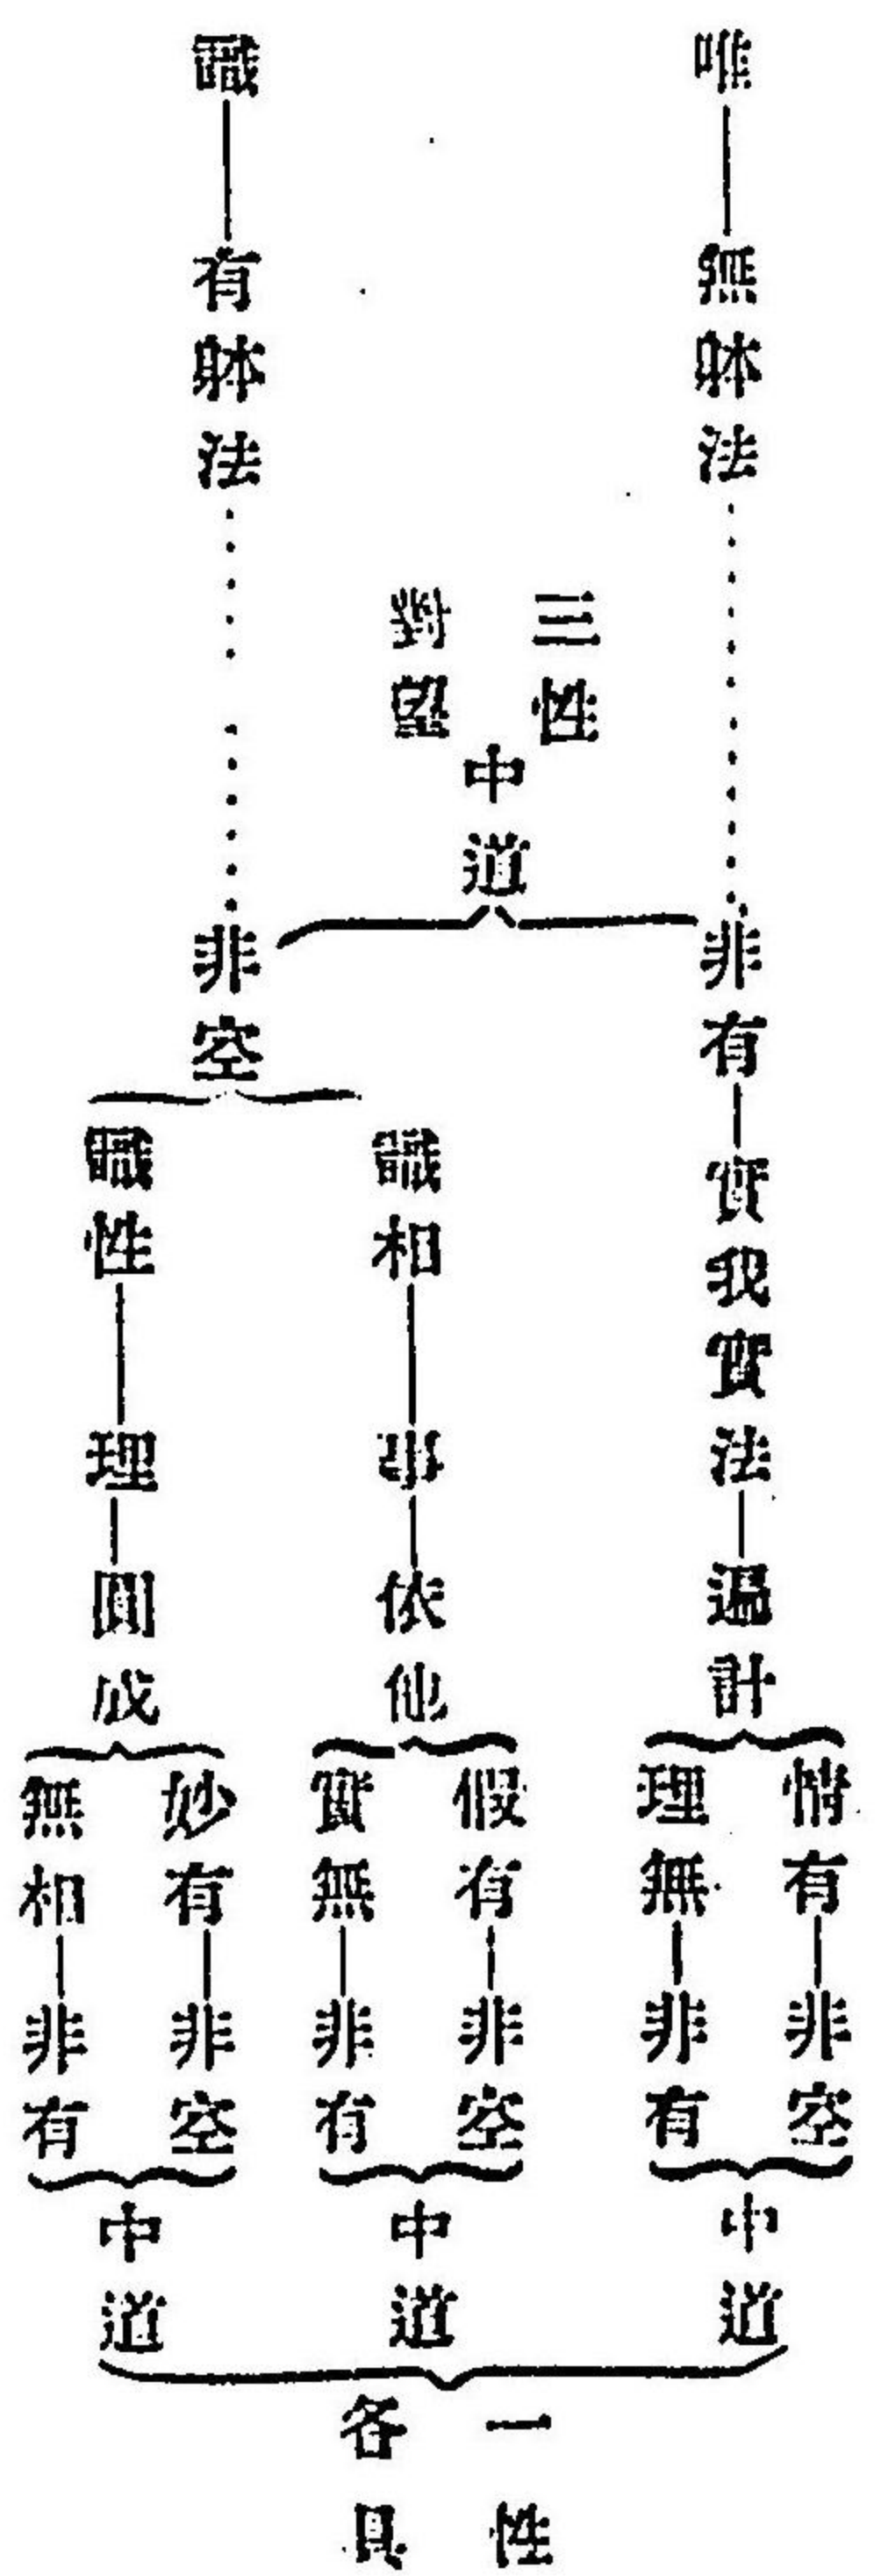 唯
無躰法
非有
實我實法
遍計
情有
非空
理無
非有
中道
三性
對望
中道
識
有躰法
非空
識相
事
依他
假有
非空
實無
非有
中道
識性
理
圓成
妙有
非空
無相
非有
中道
一性
各具